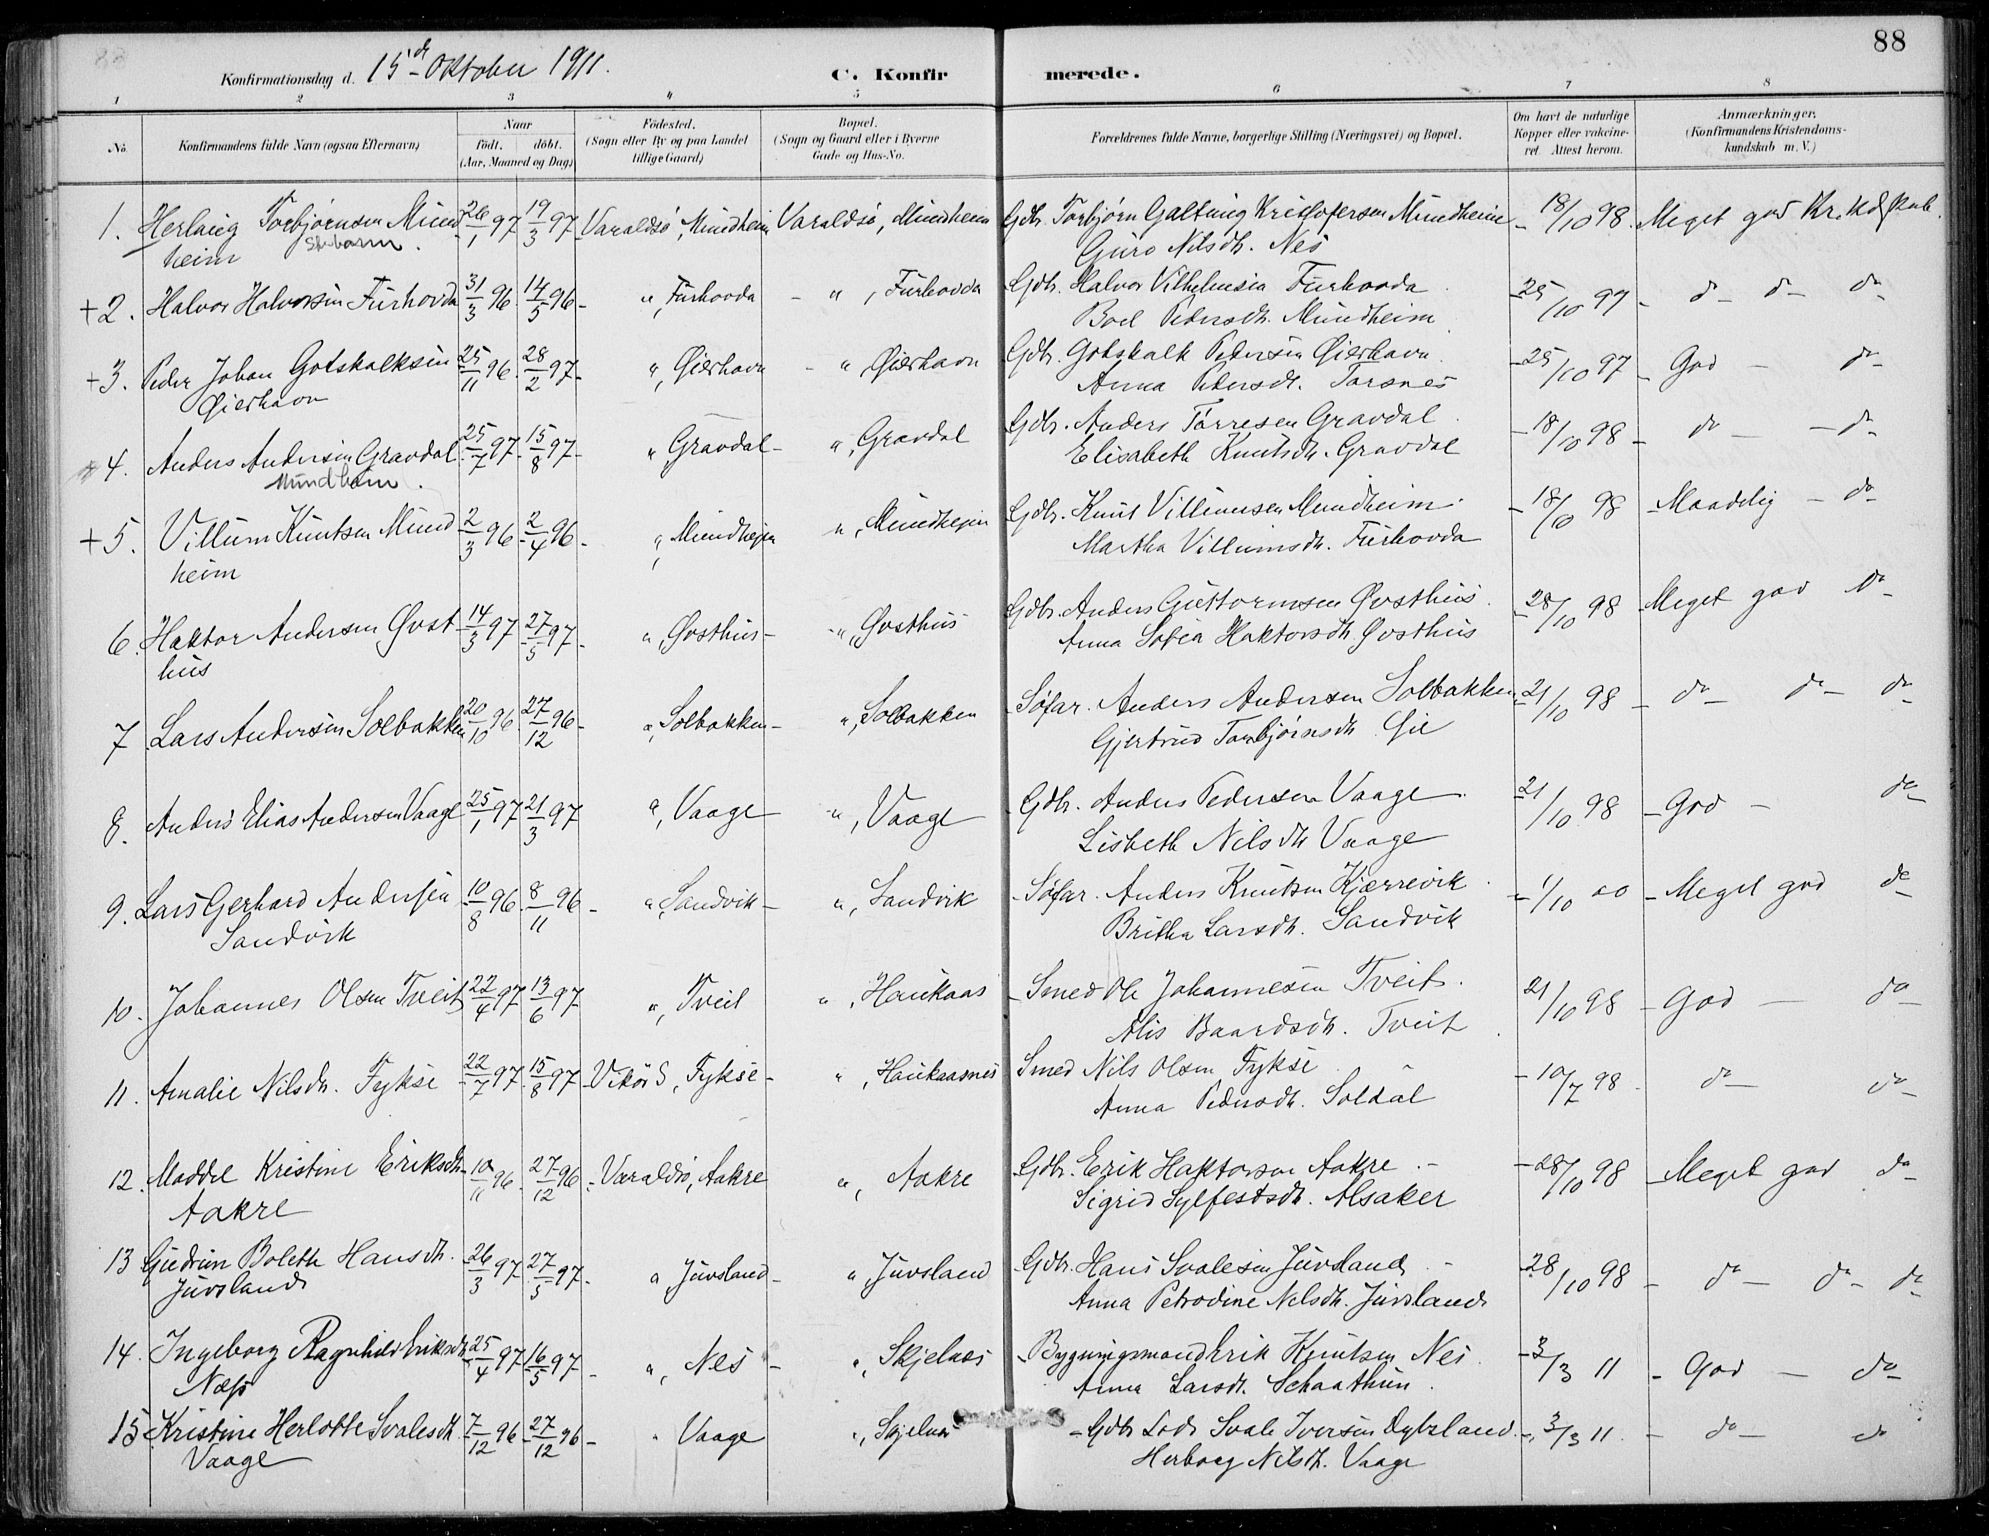 88
Konfirmationsdag d. 15de Oktober 1911.
C. Konfirmerede.
1 2 3 4 5 6 7 8
No. Konfirmandens fulde Navn (ogsaa Efternavn) Naar født. døbt. (Aar, Maaned og Dag) Fødested. (Sogn eller By og paa Landet tillige Gaard) Bopæl. (Sogn og Gaard eller i Byerne Gade og Hus-No. Forældrenes fulde Navne, borgerlige Stilling (Næringsvei) og Bopæl. Om havt de naturlige Kopper eller vakcineret. Attest herom. Anmærkninger. (Konfirmandens Kristendomskundskab m. V.)
1. Herlaug Torbjørnsen Mund 26/1 97 19/3 97 Varaldsö, Mundheim Varaldsö, Mundheim Gdbr. Torbjørn Galtung Kristofersen Mundheim 18/10 98. Meget god Kr.kdskab.
heim Guro Nilsdtr. Nes
+2. Halvor Halvorsen Furhovda 31/3 96 14/5 96 - " , Furhovda - " , Furhovda Gdbr. Halvor Vilhelmsen Furhovda 25/10 97 - do - do - do
Boel Pedersdtr. Mundheim
+3. Peder Johan Gotskalksen 25/11 96 28/2 97 - " , Øierhavn - " , Øierhavn Gdbr. Gotskalk Pedersen Øierhavn 25/10 97 - God - do
Øierhavn Anna Pedersdtr. Torsnes
4. Anders Andersen Gravdal 25/7 97 15/8 97 - " Gravdal - " , Gravdal Gdbr. Anders Tørresen Gravdal 18/10 98 - do - do
Mundheim. Elisabeth Knutsdtr. Gravdal
+5. Villum Knutsen Mund 2/3 96 2/4 96 - " , Mundheim " , Mundheim Gdbr. Knut Villumsen Mundheim 18/10 98 - Maadelig - do
heim Martha Villumsdtr. Furhovda
6. Haktor Andersen Øvst 14/3 97 27/5 97 - " , Øvsthus - " , Øvsthus Gdbr. Anders Guttormsen Øvsthus 28/10 98 - Meget god do
hus Anna Sofia Haktorsdtr Øvsthus
7. Lars Andersen Solbakken 20/10 96 27/12 96 - " , Solbakken - " , Solbakken Søfar. Anders Andersen Solbakken 21/10 98 - do - do - do
Gjertrud Torbjørnsdtr Øie
8. Anders Elias Andersen Vaage 25/1 97 21/3 97 " , Vaage " , Vaage Gdbr. Anders Pedersen Vaage 21/10 98 - God - do
Lisbeth Nilsdtr Vaage
9. Lars Gerhard Andersen 10/8 96 8/11 96 - " , Sandvik - " , Sandvik Søfar. Anders Knutsen Kjærrevik 1/10 00 - Meget god do
Sandvik Britha Larsdtr. Sandvik
10. Johannes Olsen Tveit 22/4 97 13/6 97 " , Tveit " , Haukaas Smed Ole Johannesen Tveit. 21/10 98 - God - do
Alis Baardsdtr. Tveit
11. Amalie Nilsdtr. Fykse 22/7 97 15/8 97 - Vikör S, Fykse - " , Haukaasnes Smed Nils Olsen Fykse 10/7 98 do - do
Anna Pedersdtr. Soldal
12. Maddel Kristine Eriksdtr. 10/11 96 27/12 96 - Varaldsö, Aakre " , Aakre Gdbr. Erik Haktorson Aakre 28/10 98 - Meget god do
Aakre Sigrid Sylfestsdtr. Alsaker
13 Gudrun Bolette Hansdtr. 26/3 97 27/5 97 - " , Juvsland - " , Juvsland Gdbr. Hans Svalesen Juvsland 28/10 98 - do - do - do
Juvsland Anna Petrodine Nelsdtr. Juvsland
14. Ingeborg Ragnhild Eriksdtr 25/4 97 16/5 97 - " , Nes - " , Skjelnes Bygningsmand Erik Knutsen Nes 3/3 11 - God - do
Næss Anna Larsdtr. Schaathun.
15 Kristine Herlotte Svalesdtr. 7/12 96 27/12 96 - " Vaage " , Skjelnes - Gdbr Lods Svale Iversen Dybsland 3/3 11. - do - do
Vaage Herborg Nilsdtr. Vaage